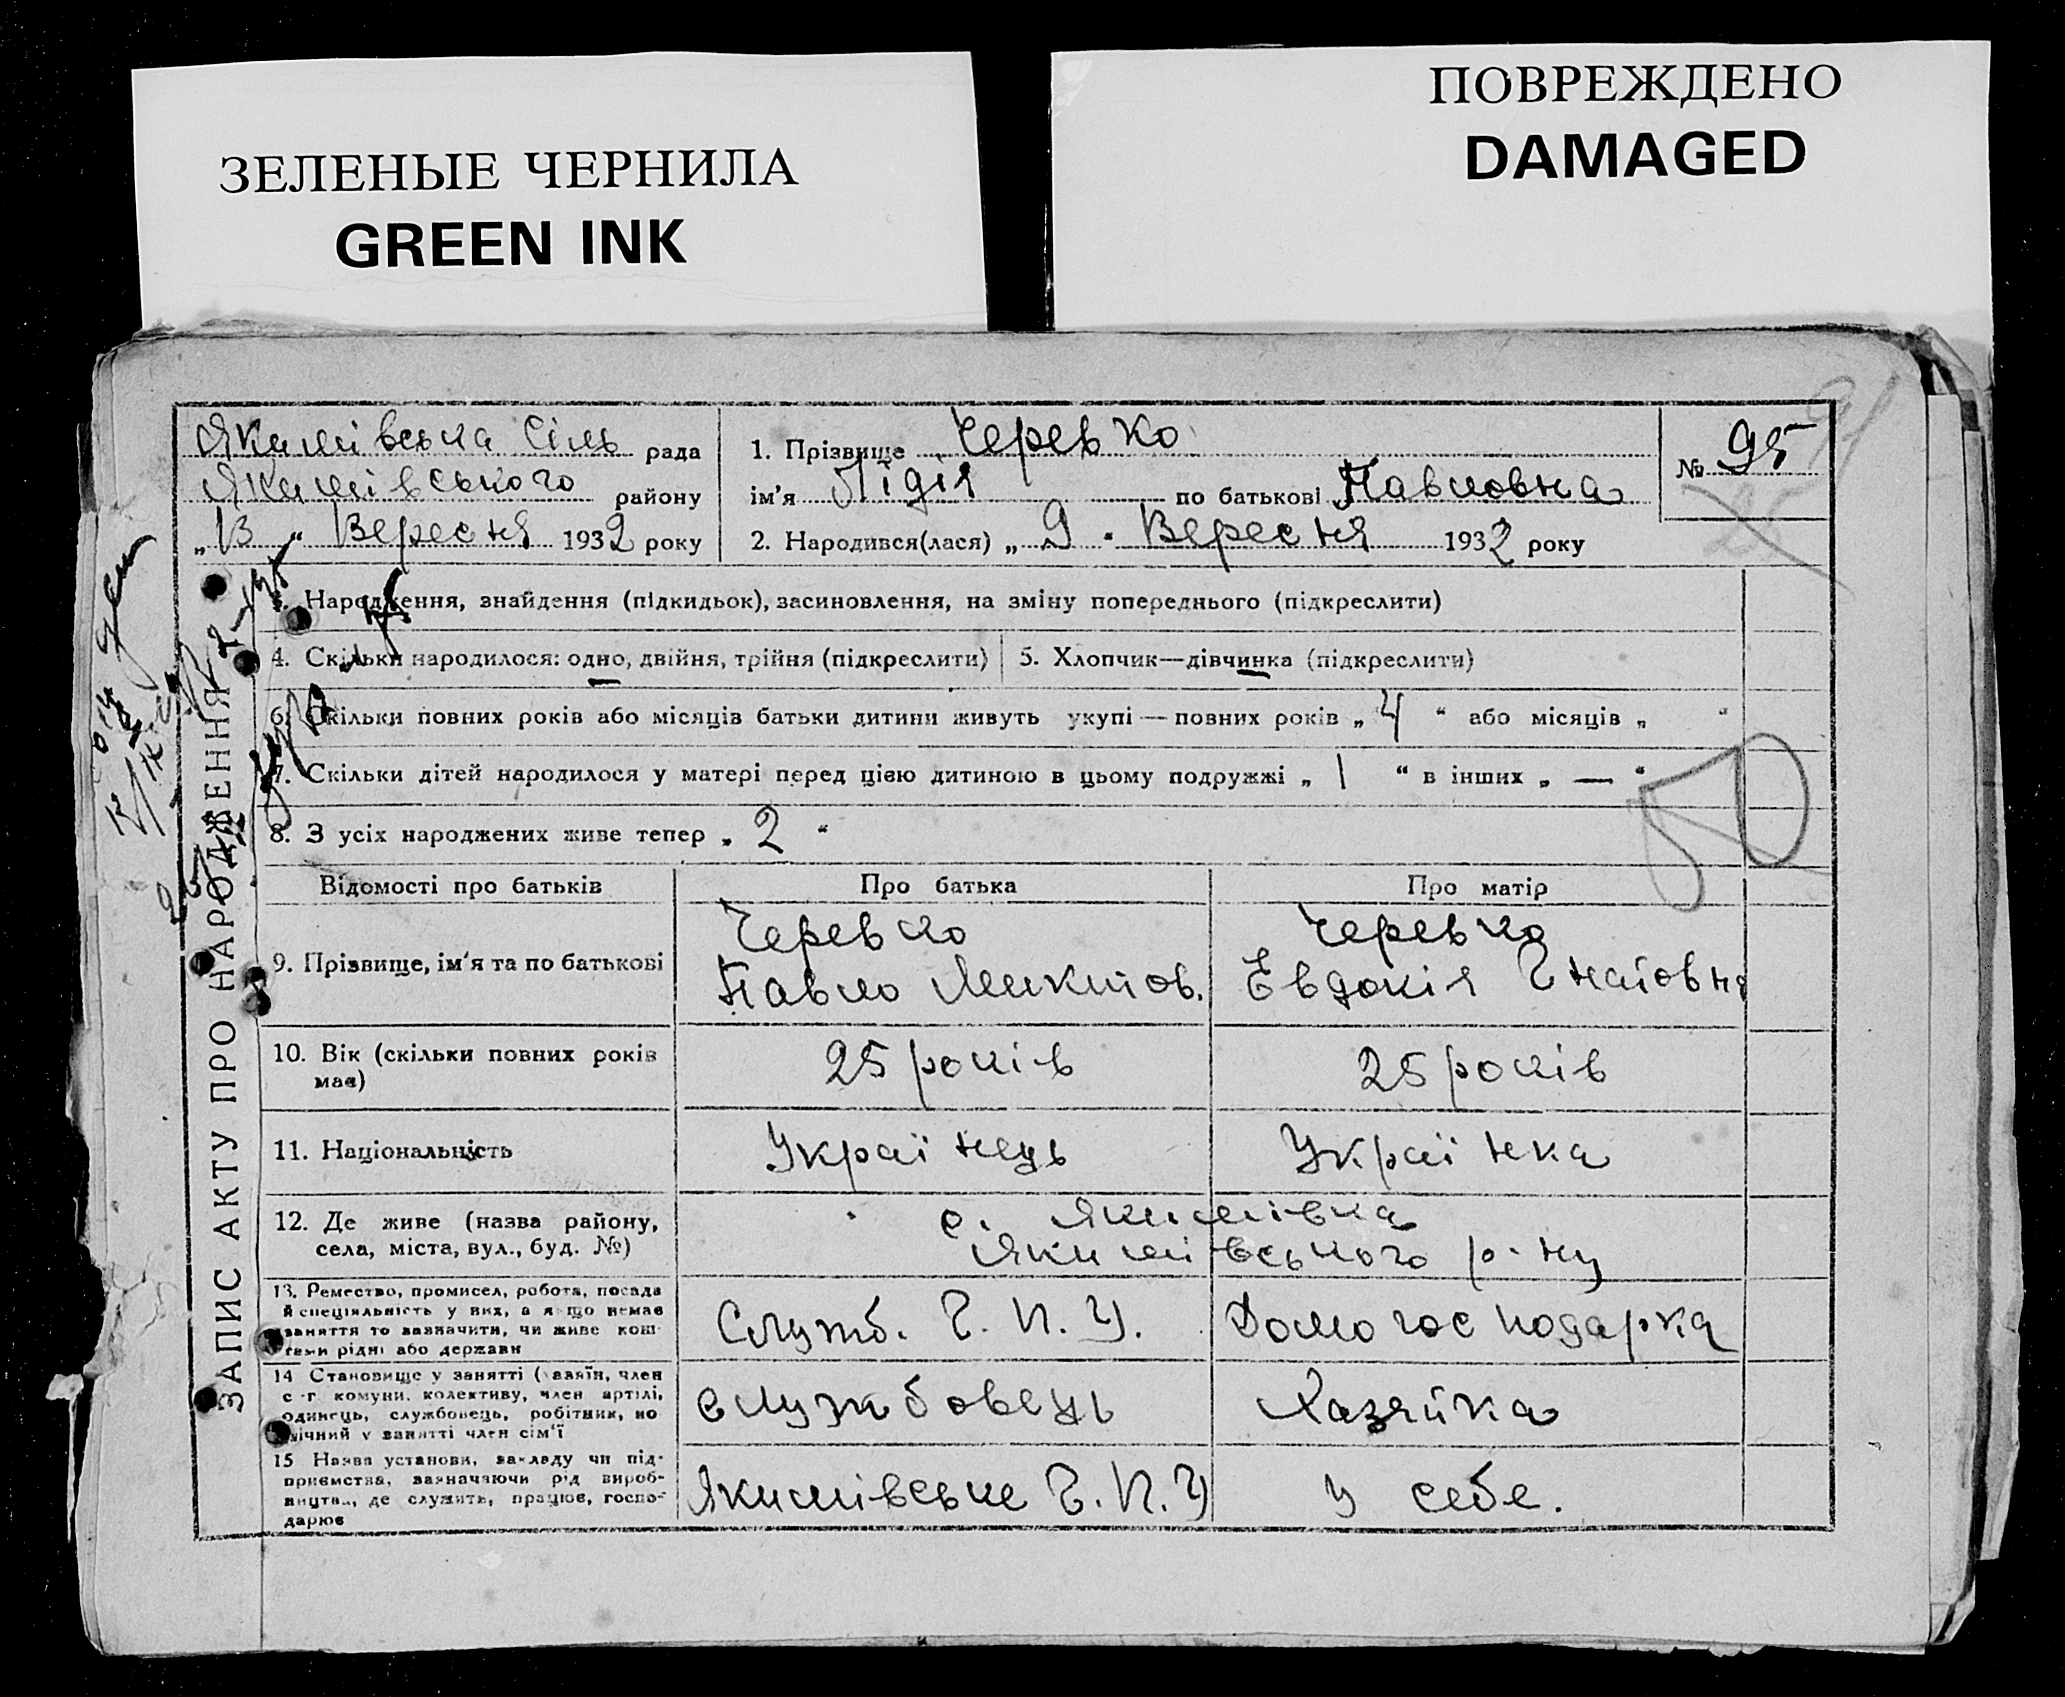 ЗЕЛЕНЫЕ ЧЕРНИЛА
GREEN INK
ПОВРЕЖДЕНО
DAMAGED
Якимівська Сіль рада
Якимівського району
„13“ Вересня 1932 року
1. Прізвище Черевко
ім’я Лідія по батькові Павловна
2. Народився(лася) „9“ Вересня 1932 року
№ 95
91
25
ЗАПИС АКТУ ПРО НАРОДЖЕННЯ
3. Народження, знайдення (підкидьок), засиновлення, на зміну попереднього (підкреслити)
4. Скільки народилося: одно, двійня, трійня (підкреслити)
5. Хлопчик—дівчинка (підкреслити)
6. Скільки повних років або місяців батьки дитини живуть укупі—повних років „4“ або місяців „ “
7. Скільки дітей народилося у матері перед цією дитиною в цьому подружжі „1“ в інших „—“
8. З усіх народжених живе тепер „2“
Відомості про батьків
Про батька
Про матір
9. Прізвище, ім’я та по батькові
Черевко
Павло Микитов.
Черевко
Евдокія Гнатовна
10. Вік (скільки повних років має)
25 років
25 років
11. Національність
Українець
Українка
12. Де живе (назва району,
села, міста, вул., буд. №)
с. Якимівка
Якимівського р-ну
13. Ремество, промисел, робота, посада
й спеціяльність у них, а якщо немає
заняття то зазначити, чи живе кош-
тами рідні або держави
Служб. Г. П. У.
Домогосподарка
14 Становище у занятті (хазяїн, член
с-г. комуни, колективу, член артілі,
одинець, службовець, робітник, по
мічний у занятті член сім’ї
службовець
Хазяйка
15 Назва установи, закладу чи під-
приємства, зазначаючи рід вироб-
ництва, де служить, працює, госпо-
дарює
Якимівське Г. П. У
У себе.